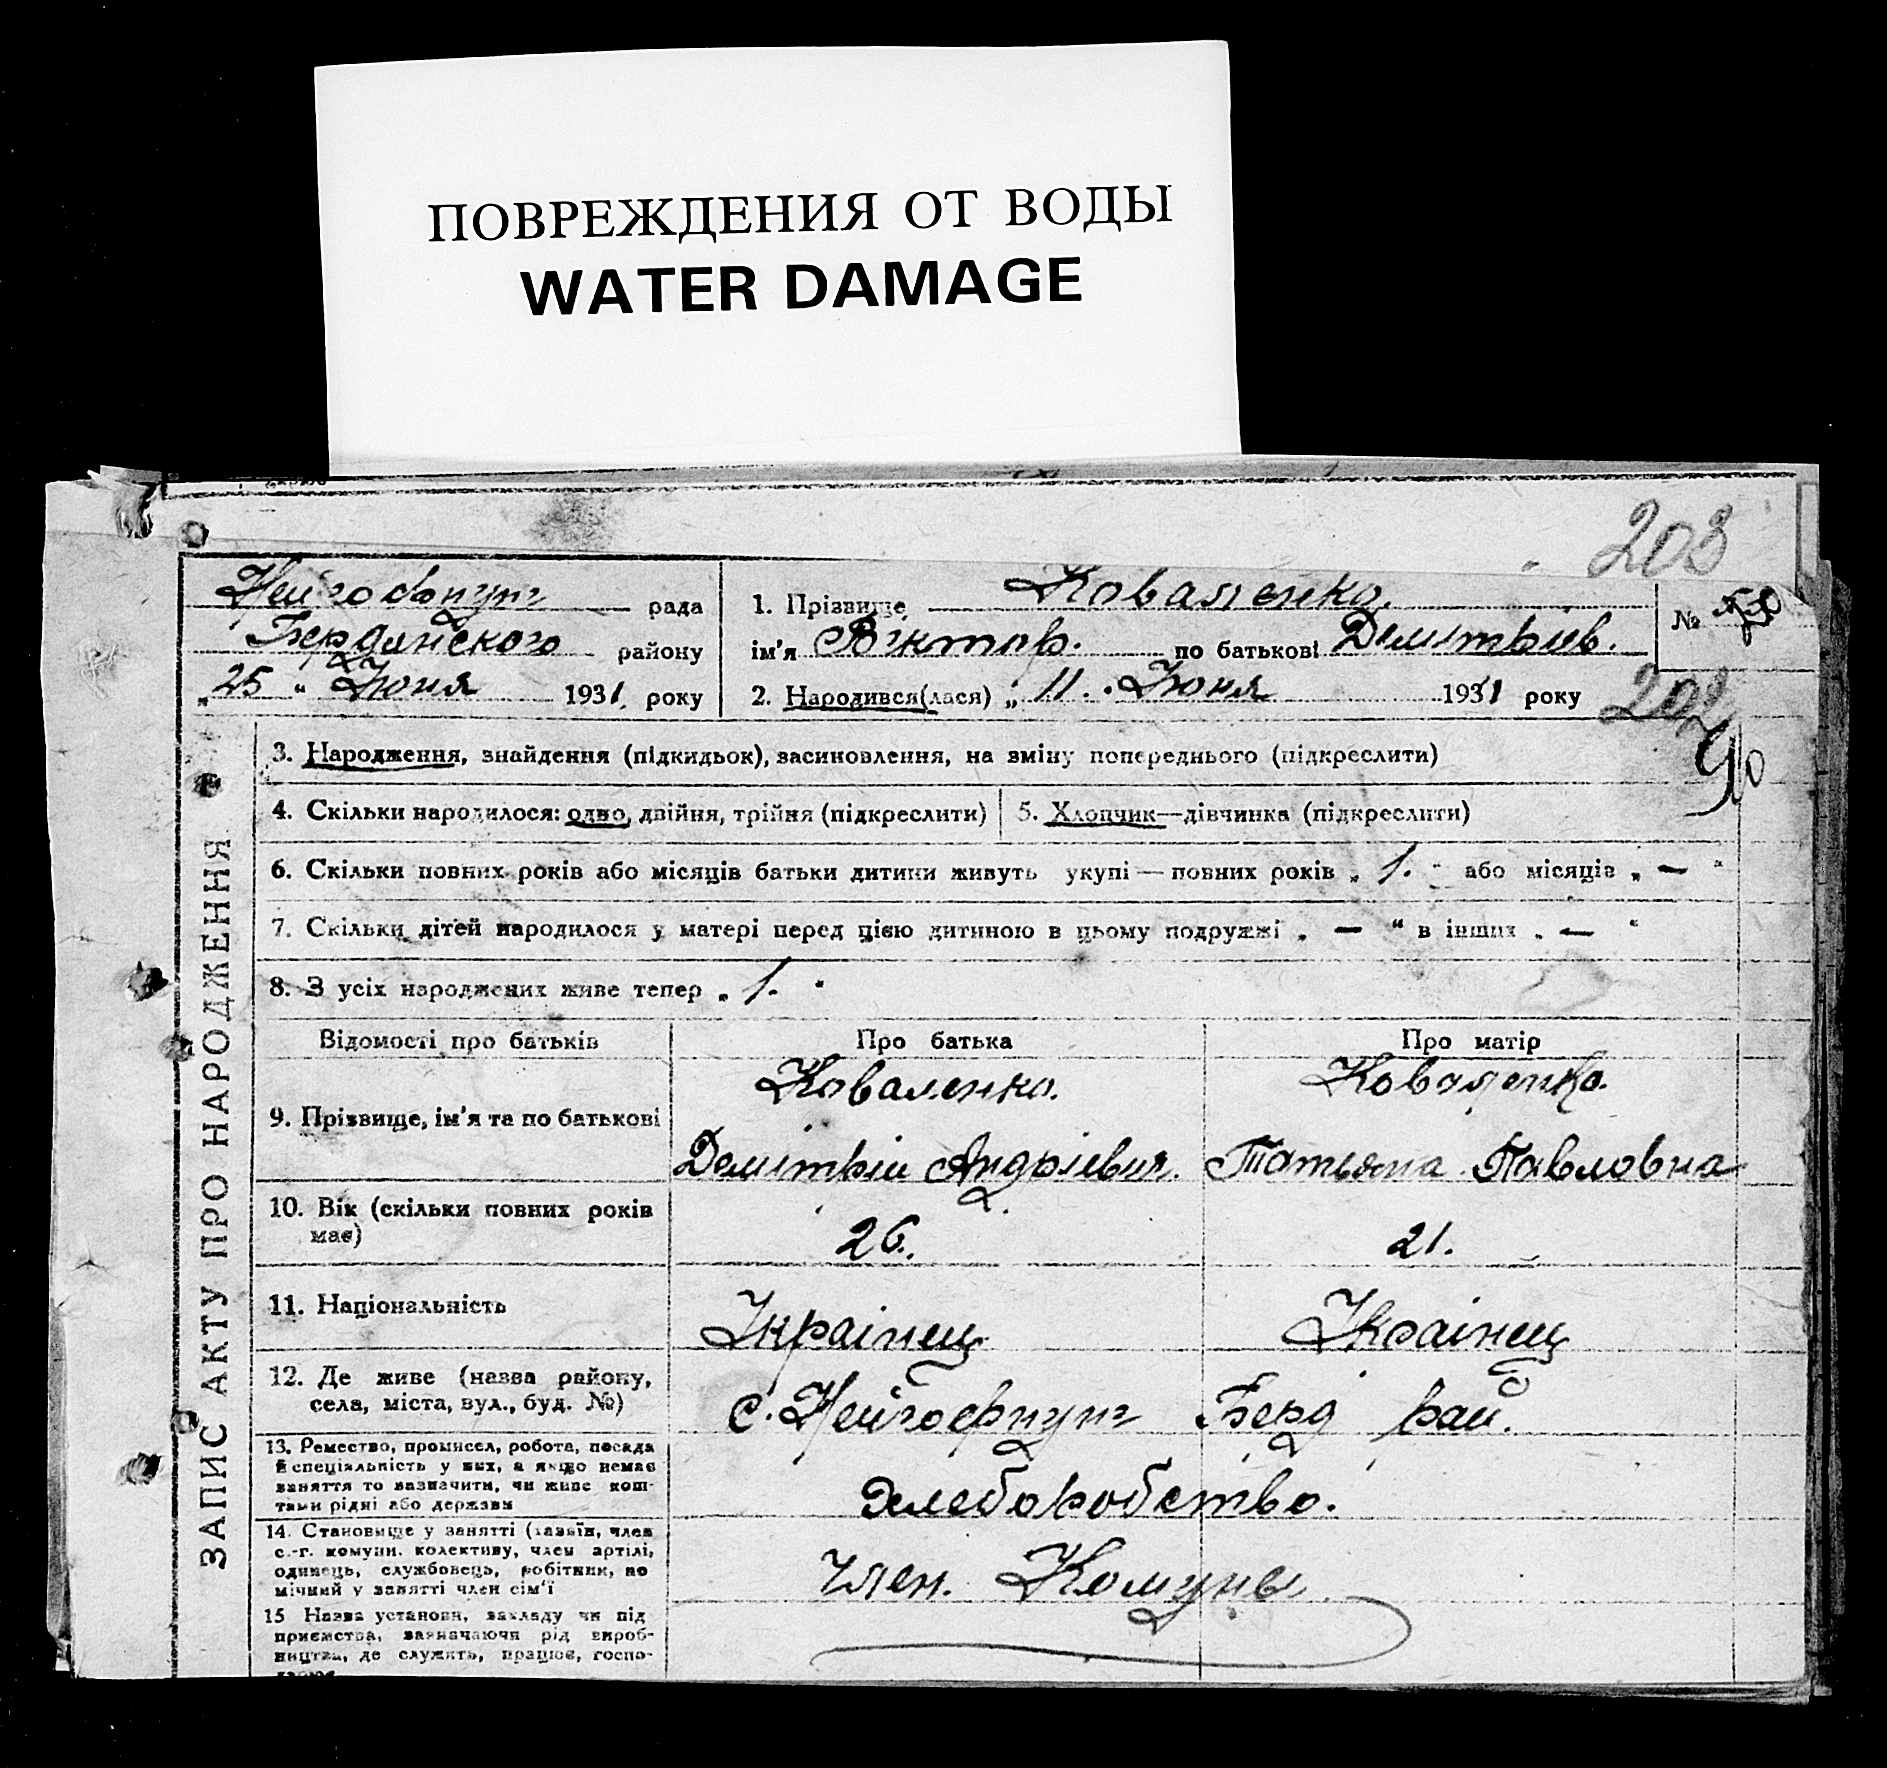 ПОВРЕЖДЕНИЯ ОТ ВОДЫ
WATER DAMAGE
203
Нейгофнунг рада
Бердянського району
„25“ Июня 1931 року
1. Прізвище Коваленко.
ім'я Віктор. по батькові Демітріев.
2. Народився(лася) „11. Июня 1931 року
№
90
ЗАПИС АКТУ ПРО НАРОДЖЕННЯ
3. Народження, знайдення (підкидьок), засиновлення, на зміну попереднього (підкреслити)
4. Скільки народилося: одно, двійня, трійня (підкреслити)
5. Хлопчик—дівчинка (підкреслити)
6. Скільки повних років або місяців батьки дитини живуть укупі — повних років „ 1. “ або місяців „ — “
7. Скільки дітей народилося у матері перед цією дитиною в цьому подружжі „ — “ в інших „ — “
8. З усіх народжених живе тепер „ 1. “
Відомості про батьків
Про батька
Про матір
9. Прізвище, ім'я та по батькові
Коваленко.
Коваленко.
Демітрій Андріевич.
Татьяна Павловна
10. Вік (скільки повних років має)
26.
21.
11. Національність
Українец
Украінец
12. Де живе (назва району,
села, міста, вул., буд. №)
с. Нейгофнунг Берд рай.
13. Ремество, промисел, робота, посада
й спеціяльність у них, а якщо немає
заняття то зазначити, чи живе кош-
тами рідні або держави
хлеборобство.
14. Становище у занятті (хазяїн, член
с.-г. комуни, колективу, член артілі,
одинець, службовець, робітник, по
мічний у занятті член сім'ї
член. Комуны
15 Назва установи, закладу чи під
приємства, зазначаючи рід вироб-
ництва, де служить, працює, госпо-